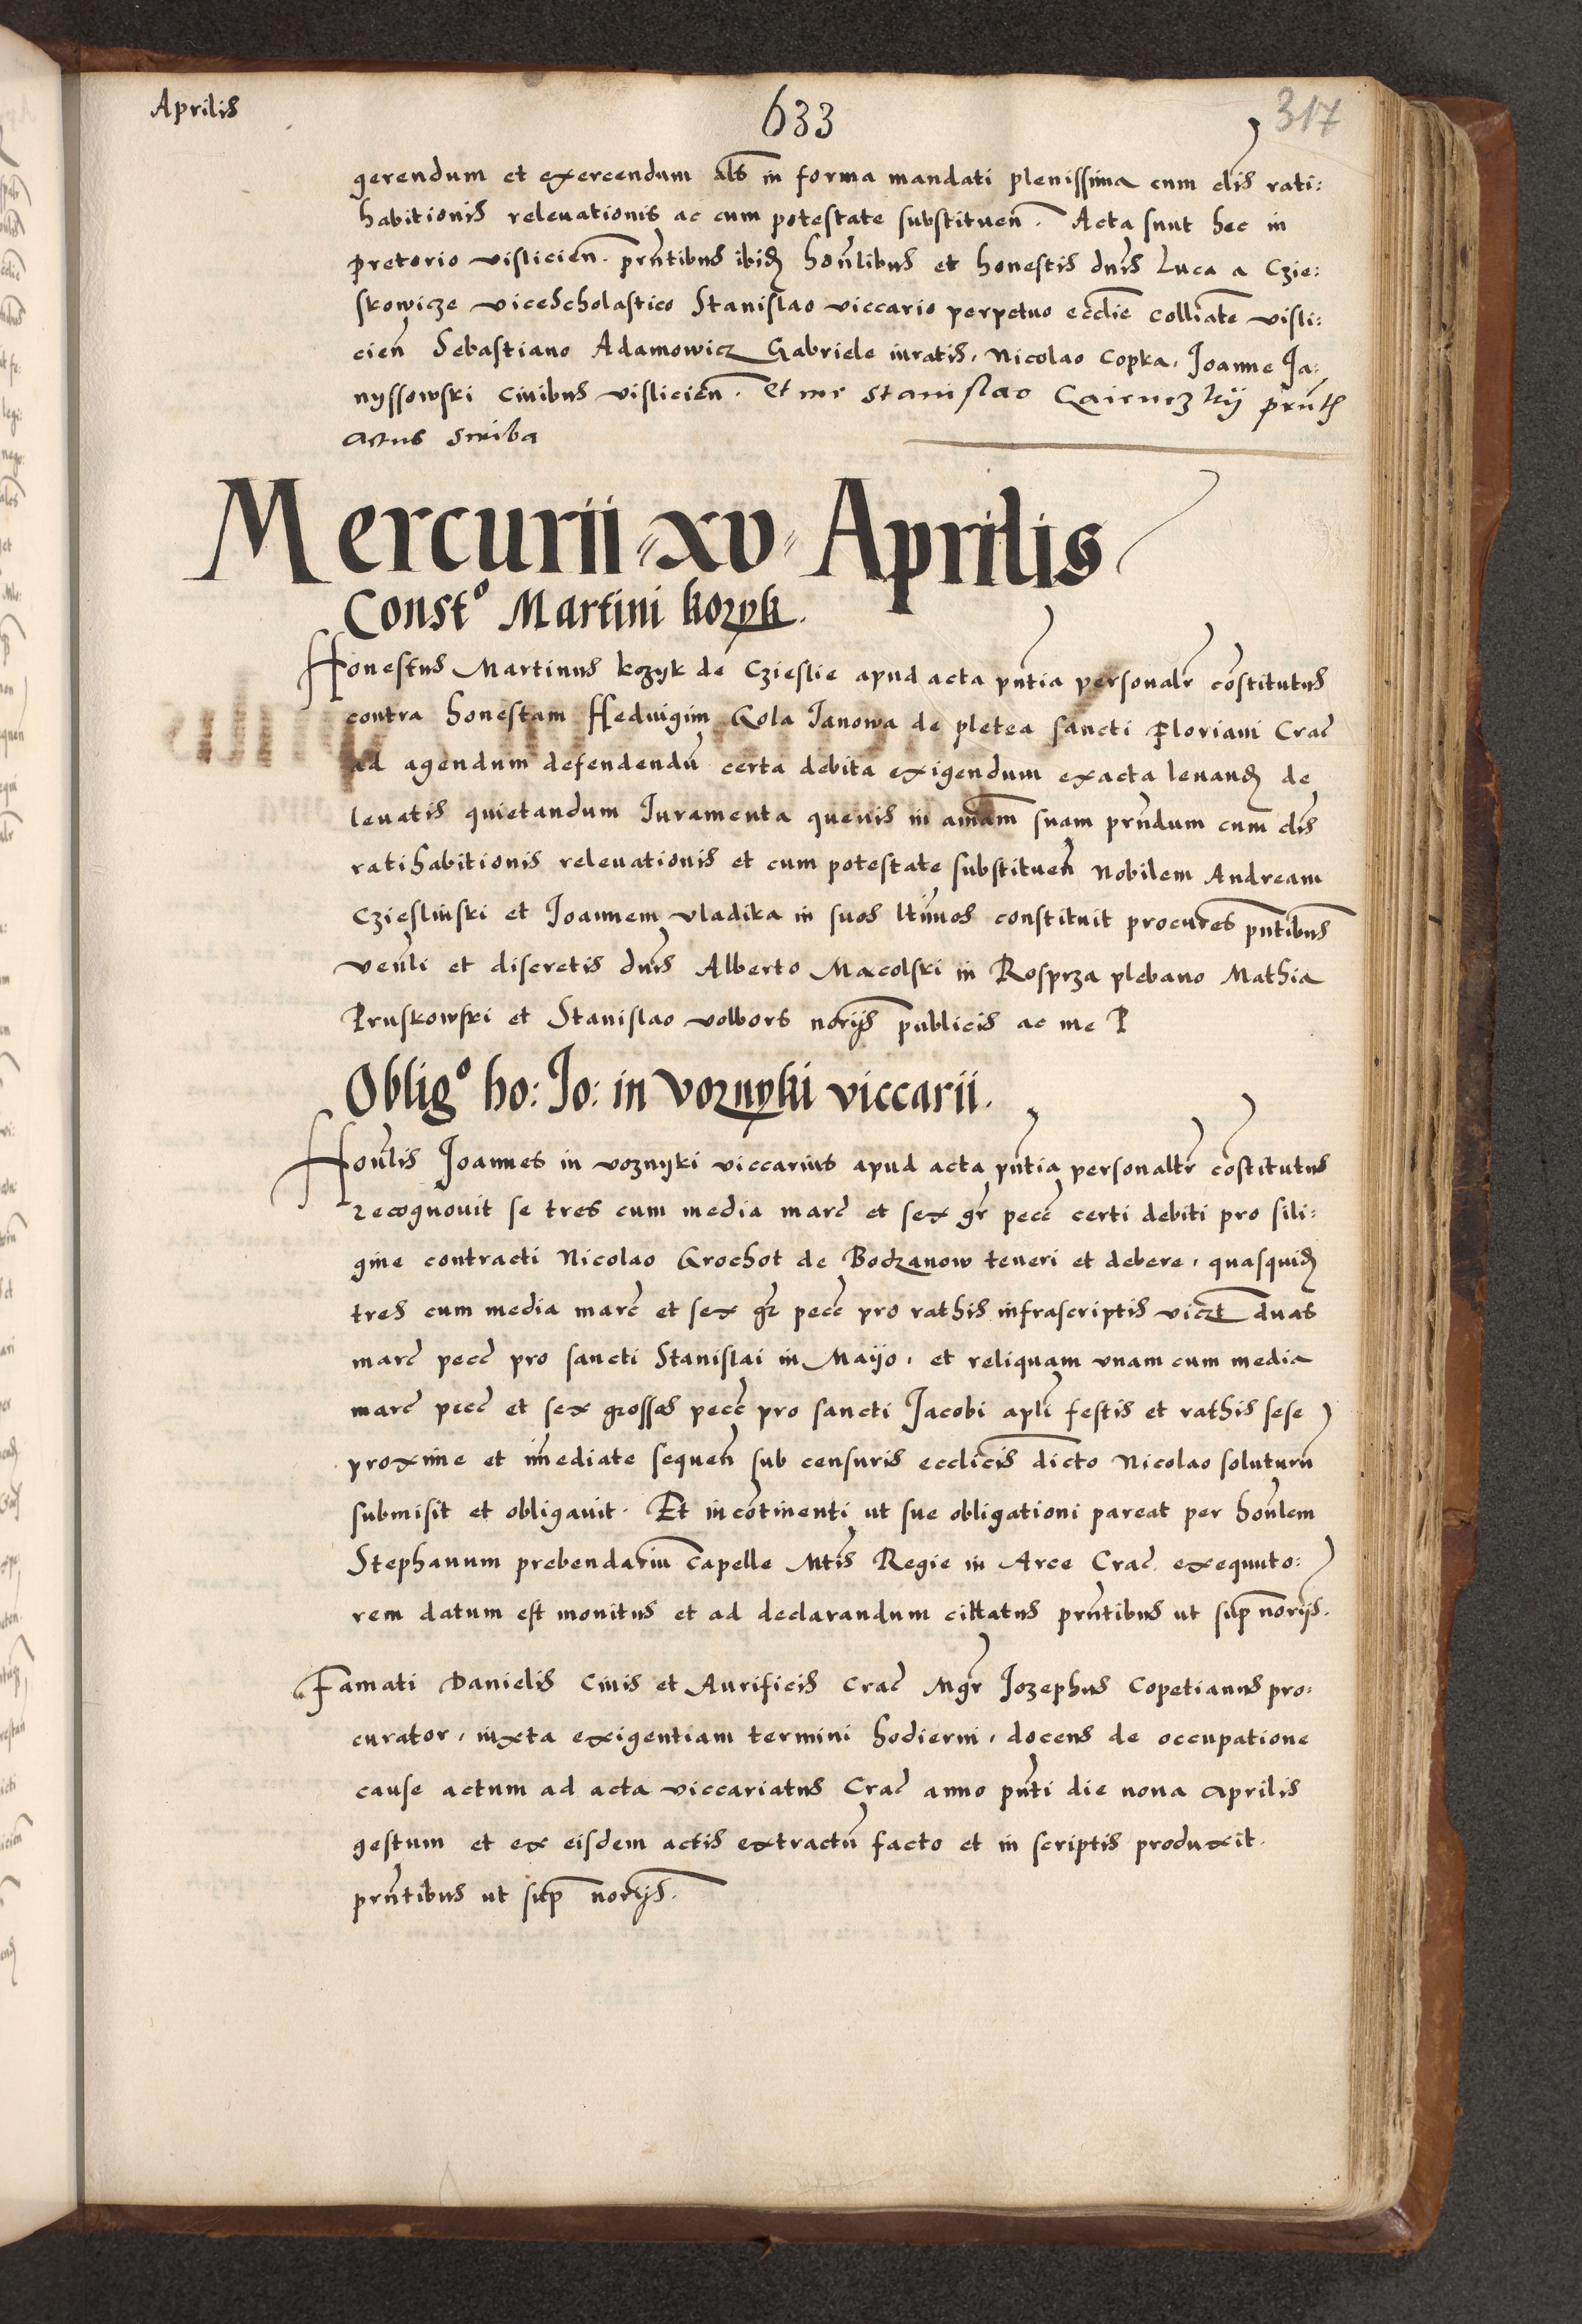 Aprilis
633
317
gerendum et exercendum als in forma mandati plenissima cum clis rati:
habitionis releuationis ac cum potestate substituen. Acta sunt hec in
pretorio vislicien. prntibus ibid honlibus et honestis dnis Luca a Czie:
skowicze vicescholastico Stanislao viccario perpetuo ecclie colliate visli:
cien Sebastiano Adamowicz Gabriele iuratis, Nicolao Copka, Joanne Ja:
nyssowski Ciuibus vislicien. Et me Stanislao prnts
actus scriba
Mercurii xv Aprilis
Constº Martini kozyk.
Honestus Martinus kozyk de Czieslie apud acta pntia personalr constitutus
contra honestam Heduigim Gola Janowa de pletea sancti Floriani Crac
ad agendum defendendu certa debita exigendum exacta leuand de
leuatis quietandum Juramenta queuis in amam suam prndum cum clis
ratihabitionis releuationis et cum potestate substituen Nobilem Andream
Czieslinski et Joannem vladika in suos ltimos constituit procures pntibus
venli et discretis dnis Alberto Macolski in Rosprza plebano Mathia
Pruskowski et Stanislao volbors norijs publicis ac me P
Obligº ho: Jo: in Voznyki viccarii.
Honlis Joannes in voznyki viccarius apud acta pntia personaltr constitutus
recognouit se tres cum media marc et sex gr pecc certi debiti pro sili:
gine contracti Nicolao Grochot de Bodzanow teneri et debere, quasquid
tres cum media marc et sex gr pecc pro rathis infrascriptis viczt duas
marc pecc pro sancti Stanislai in Maijo, et reliquam vnam cum media
marc pecc et sex grossos pecc pro sancti Jacobi apli festis et rathis sese
proxime et imediate sequen sub censuris ecclicis dicto Nicolao soluturu
submisit et obligauit. Et in continenti ut sue obligationi pareat per honlem
Stephanum prebendariu Capelle Mtis Regie in Arce Crac exequuto:
rem datum est monitus et ad declarandum cittatus prntibus ut sup norijs.
Famati Danielis Ciuis et Aurificis Crac Mgr Jozephus Copetianus pro:
curator, iuxta exigentiam termini hodierni, docens de occupatione
cause actum ad acta viccariatus Crac anno pnti die nona Aprilis
gestum et ex eisdem actis extractu facto et in scriptis produxit.
prntibus ut sup norijs.